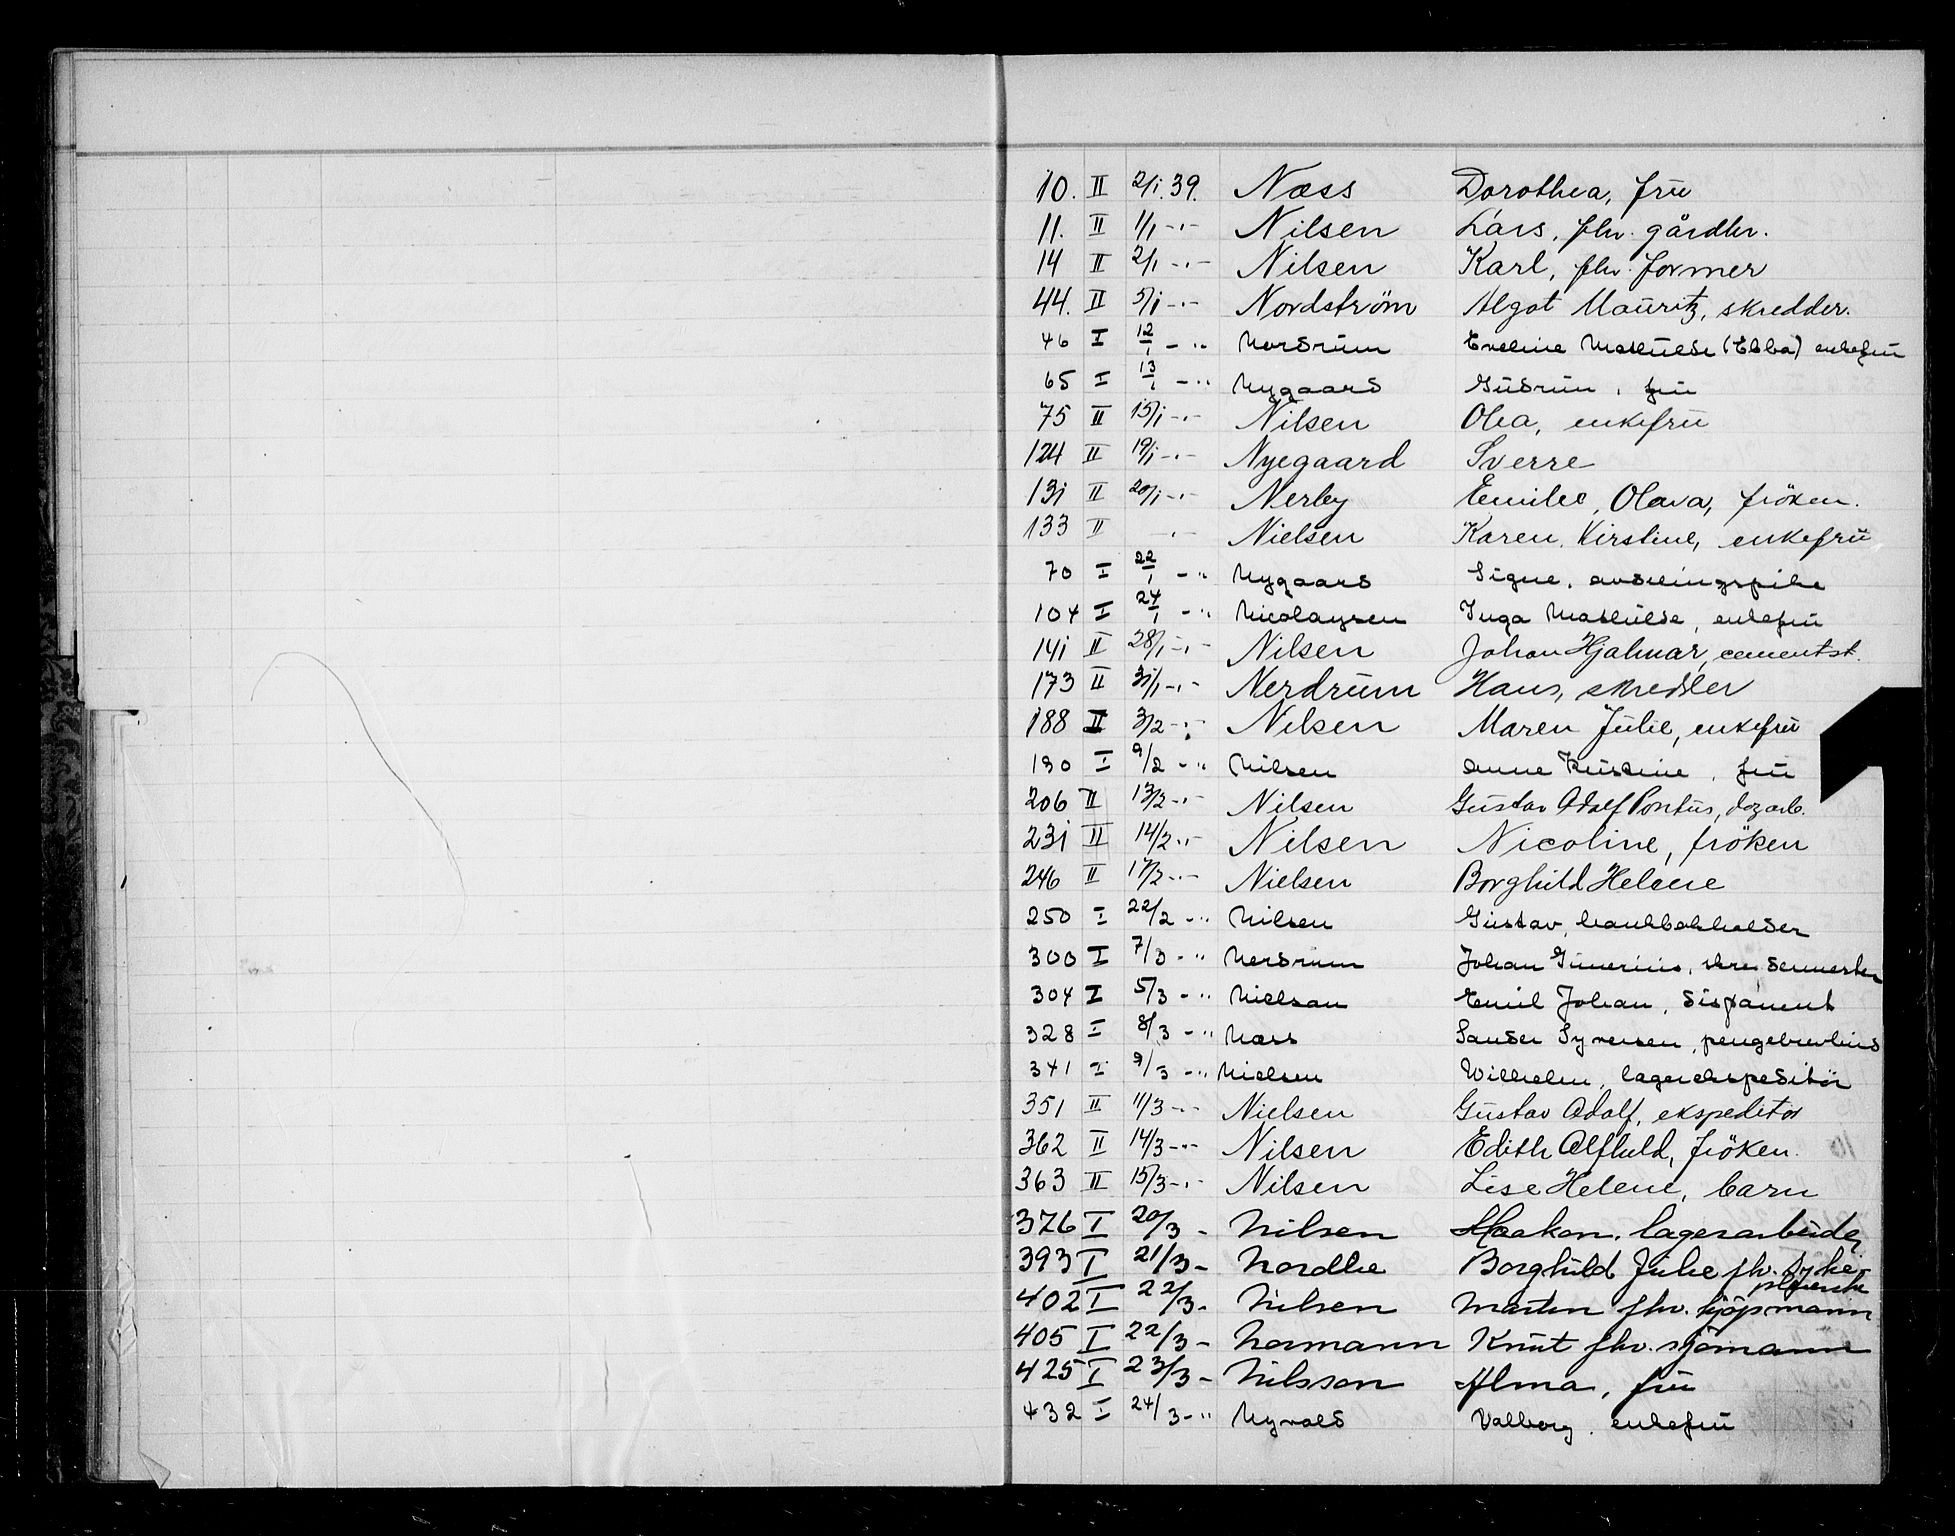 10. II 2/1. 39. Næss Dorothea, frü
11. II 1/1 -"- Nilsen Lars, fhv. gårdbr.
14 II 2/1 -"- Nilsen Karl, fhv. former
44. II 5/1 -"- Nordström Algot Mauritz, skredder.
46 I 12/1 - " Nordrum Eveline Mathilde (Ebba) enkefrü
65 I 13/1 - " Nygaard Gudrun, frü
75 II 15/1 -"- Nilsen Olea, enkefrü
124 II 19/1 -"- Nyegaard Sverre
131 II 20/1 -"- Nerby Emilie, Olava, fröken.
133 II -"- Nielsen Karen, Kirstine, enkefrü
70 I 22/1 - " Nygaard Signe, avdelingspike
104 I 24/1 - " Nicolaysen Inga Mathilde, enkefrü
141 II 28/1 -"- Nilsen Johan Hjalmar, cementst.
173 II 31/1 -"- Nerdrum Hans, skredder
188 II 3/2 -"- Nilsen Maren Julie, enkefrü
190 I 9/2 - " Nilsen Anne Kristine, frü
206 II 13/2 -"- Nilsen Gustav Adolf Pontus,
231 II 14/2 -"- Nilsen Nicoline, fröken
246 II 17/2 -"- Nielsen Borghild Helene
250 I 22/2 - " Nilsen Gustav, bankbokholder
300 I 7/3 - " Nordrum Johan Gunerius, skreddermester
304 I 5/3 - " Nielsen Emil Johan, disponent
328 I 8/3 - " Næss Sander Syversen, pengebrevbud
341 I 9/3 - " Nielsen Wilhelm, lagerekspeditör
351 II 11/3 -"- Nielsen Gustav Adolf, ekspeditör
362 II 14/3 -"- Nilsen Edith Alfhild, fröken.
363 II 15/3 -"- Nilsen Lise Helene, barn
376 I 20/3 - Nilsen Haakon, lagerarbeider
393 I 21/3 - Nordlie Borghild Julie fhv. syke-
pleierske
402 I 22/3 - Nilsen Martin fhv. kjöpmann
405 I 22/3 - Normann Knut fhv. sjömann
425 I 23/3 - Nilsson Alma, frü
432 I 24/3 - " Nyvold Valborg, enkefrü